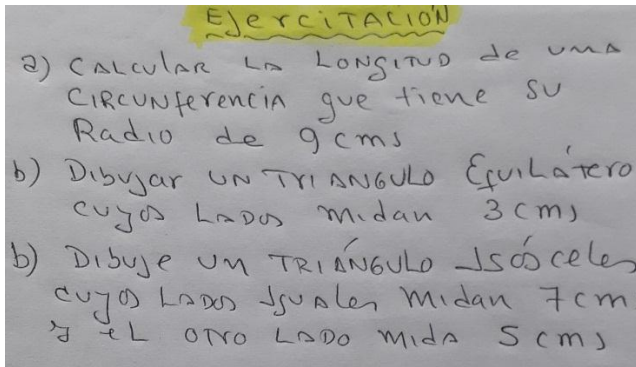 EJERCITACIÓN
a) CALCULAR LA LONGITUD de UNA
CIRCUNferencia que tiene SU
Radio de 9 cms
b) Dibujar UN TRIANGULO Equilátero
cuyos LADOS midan 3 cms
b) Dibuje UN TRIÁNGULO Isósceles
cuyos LADOS Iguales midan 7 cm
y eL OTRO LADO mida 5 cms